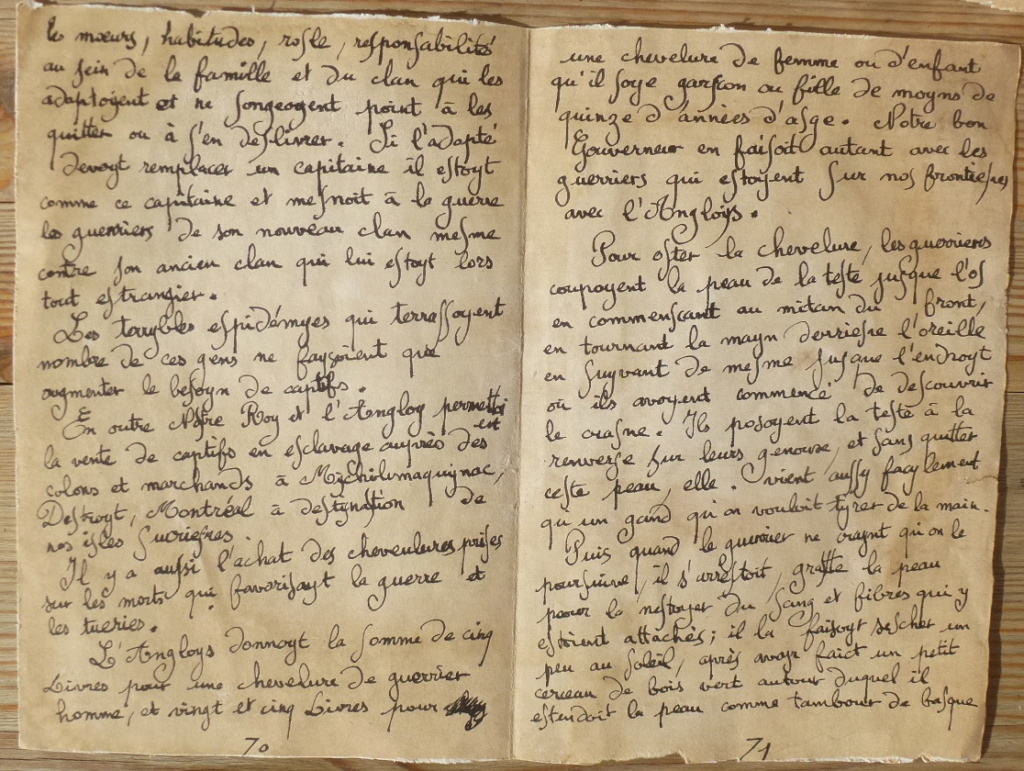 les mœurs, habitudes, rosle, responsabilité
au sein de la famille et du clan qui les
adoptoyent et ne songeogent point à les
quitter ou à s'en deslivrer. Si l'adopté
devoyt remplacer un capitaine il estoyt
comme ce capitaine et mesnoit à la guerre
les guerriers de son nouveau clan mesme
contre son ancien clan qui lui estoyt lors
tout estrangier.
Les terrybles espidémyes qui terrassoyent
nombre de ces gens ne faysoient que
augmenter le besoyn de captifs.
En outre Nostre Roy et l'Angloy permettoient
la vente de captifs en esclavage auprès des
colons et marchands à Mychilimaquynac,
Destroyt, Montréal à destynation de
nos isles sucriesres
Il y a aussi l'achat des cheveulures prises
sur les morts qui favorisayt la guerre et
les tueries.
L'Angloys donnoyt la somme de cinq
Livres pour une chevelure de guerrier
homme, et vingt et cinq Livres pour
70
une chevelure de femme ou d'enfant
qu'il soye garçon ou fille de moyns de
quinze d'années d'asge. Notre bon
Gouverneur en faisoit autant avec les
guerriers qui estoyent sur nos frontiesres
avec l'Angloys.
Pour oster la chevelure, les guerrieres
coupoyent la peau de la teste jusque l'os
en commensçant au mitan du front,
en tournant la mayn derriesre l'oreille
en suyvant de mesme jusque l'endroyt
où ils avoyent commencé de descouvrir
le crasne. Ils posoyent la teste à la
renverse sur leurs genoux, et sans quitter
ceste peau, elle. vient aussy facylement
qu'un gand qu'on vouloit tyrer de la main.
Puis quand le guerrier ne craynt qu'on le
poursuive, il s'arrestoit, gratte la peau
pour la nestoyer du sang et fibres qui y
estoient attachés; il la faisoyt sescher un
peu au soleil, après avoyr faict un petit
cerceau de bois vert autour duquel il
estendoit la peau comme tambour de basque
71